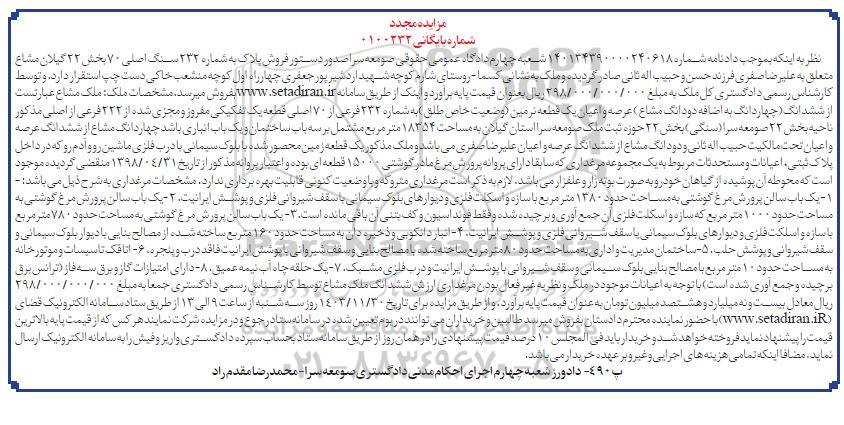 مزایده مجدد
شماره بایگانی ۰۱۰۰۲۳۲
نظر به اینکه بموجب دادنامه شماره ۱۴۰۱۳۴۳۹۰۰۰۰۲۴۰۶۱۸ شعبه چهارم دادگاه عمومی حقوقی صومعه سرا صدور دستور فروش پلاک به شماره ۲۳۲ سنگ اصلی ۷۰ بخش ۲۲ گیلان مشاع
متعلق به علیرضا صفری فرزند حسن و حبیب اله ثانی صادر گردیده و ملک به نشانی کسما-روستای شارم کوچه شهید اردشیر پور جعفری چهارراه اول کوچه منشعب خاکی دست چپ استقرار دارد. و توسط
کارشناس رسمی دادگستری کل ملک به مبلغ ۲۹۸/۰۰۰/۰۰۰/۰۰۰ ریال بعنوان قیمت پایه برآورد و اینک از طریق سامانه www.setadiran.ir بفروش میرسد. مشخصات ملک: ملک مشاع عبارتست
از ششدانگ (چهاردانگ به اضافه دو دانگ مشاع) عرصه و اعیان یک قطعه زمین (وضعیت خاص طلق) به شماره ۲۳۲ فرعی از ۷۰ اصلی قطعه یک تفکیکی مفروز و مجزی شده از ۲۲۲ فرعی از اصلی مذکور
ناحیه بخش ۲۲ صومعه سرا (سنگی) بخش ۲۲ حوزه ثبت ملک صومعه سرا استان گیلان به مساحت ۱۸۳۵۴ متر مربع مشتمل بر سه باب ساختمان و یک باب انباری باشد چهاردانگ مشاع از ششدانگ عرصه
و اعیان تحت مالکیت حبیب اله ثانی و دودانگ مشاع از ششدانگ عرصه و اعیان علیرضا صفری می باشد و ملک مذکور یک قطعه زمین محصور شده با بلوک سیمانی با درب فلزی ماشین رو و آدم رو که در داخل
پلاک ثبتی، اعیانات و مستحدثات مربوط به یک مجموعه مرغداری که سابقا دارای پروانه پرورش مرغ مادر گوشتی ۱۵۰۰۰ قطعه ای بوده و اعتبار پروانه مذکور از تاریخ ۱۳۹۸/۰۴/۳۱ منقضی گردیده موجود
است که محوطه آن پوشیده از گیاهان خودرو به صورت بوته زار و علفزار می باشد. لازم به ذکر است مرغداری متروکه و با وضعیت کنونی قابلیت بهره برداری ندارد. مشخصات مرغداری به شرح ذیل می باشد: -
۱- یک باب سالن پرورش مرغ گوشتی به مساحت حدود ۱۳۸۰ متر مربع با سازه و اسکلت فلزی و دیوارهای بلوک سیمانی با سقف شیروانی فلزی و پوشش ایرانیت. ۲- یک باب سالن پرورش مرغ گوشتی به
مساحت حدود ۱۰۰۰ متر مربع که سازه و اسکلت فلزی آن جمع آوری و برچیده شده و فقط فونداسیون و کف بتنی آن باقی مانده است. ۳- یک باب سالن پرورش مرغ گوشتی به مساحت حدود ۷۸۰ متر مربع
با سازه و اسکلت فلزی و دیوارهای بلوک سیمانی با سقف شیروانی فلزی و پوشش ایرانیت. ۴- انبار دانکوبی و ذخیره دان به مساحت حدود ۱۶۰ متر مربع ساخته شده از مصالح بنایی با دیوار بلوک سیمانی و
سقف شیروانی و پوشش حلب. ۵- ساختمان مدیریت و اداری به مساحت حدود ۸۰ متر مربع ساخته شده با مصالح بنایی و سقف شیروانی با پوشش ایرانیت فاقد درب و پنجره. ۶- اتاقک تاسیسات و موتورخانه
به مساحت حدود ۱۰ متر مربع با مصالح بنایی بلوک سیمانی و سقف شیروانی با پوشش ایرانیت و درب فلزی مشبک. ۷- یک حلقه چاه آب نیمه عمیق. ۸- دارای امتیازات گاز و برق سه فاز (ترانس برق
برچیده و جمع آوری شده است) با توجه به اعیانات موجود در ملک و نظر به غیر فعال بودن مرغداری ارزش ششدانگ ملک مشاع توسط کارشناس رسمی دادگستری جمعا به مبلغ ۲۹۸/۰۰۰/۰۰۰/۰۰۰
ریال معادل بیست و نه میلیارد و هشتصد میلیون تومان به عنوان قیمت پایه برآورد. و از طریق مزایده برای تاریخ ۱۴۰۳/۱۱/۳۰ روز سه شنبه از ساعت ۹ الی ۱۳ از طریق ستاد سامانه الکترونیک قضای
(www.setadiran.iR) با حضور نماینده محترم دادستان بفروش میرسد طالبین و خریداران می توانند در یوم تعیین شده در سامانه ستاد رجوع و در مزایده شرکت نمایند هر کس که از قیمت پایه بالاترین
قیمت را پیشنهاد نماید فروخته خواهد شد و خریدار باید فی المجلس ۱۰ درصد قیمت پیشنهادی را در همان روز از طریق سامانه ستاد بحساب سپرده دادگستری واریز و فیش را به سامانه الکترونیک ارسال
نماید. مضافا اینکه تمامی هزینه های اجرایی و غیره بر عهده خریدار می باشد.
پ ۴۹۰- دادورز شعبه چهارم اجرای احکام مدنی دادگستری صومعه سرا- محمدرضا مقدم راد